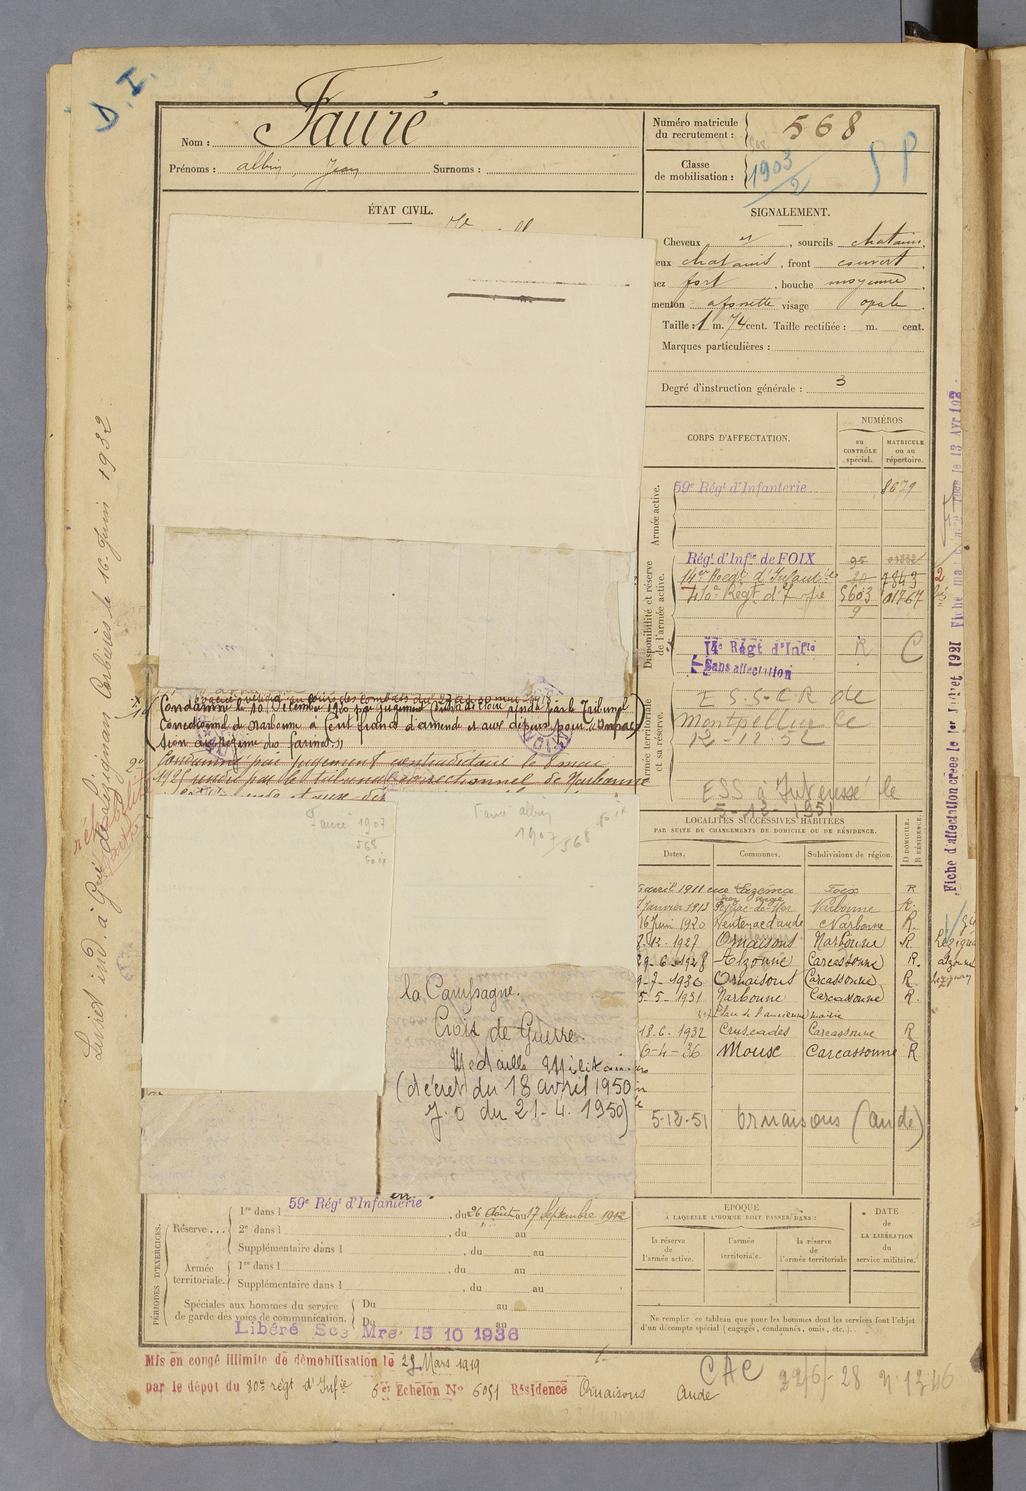 D. I.
Nom : Fauré
Prénoms : albin, Jean Surnoms :
Numéro matricule du recrutement : 568
Classe de mobilisation : 1903/2
SP
ÉTAT CIVIL.
SIGNALEMENT.
Cheveux et, sourcils chatains,
eux chatains, front couvert,
nez fort, bouche moyenne,
menton visage ovale.
Taille : 1 m. 74 cent. Taille rectifiée : m. cent.
Marques particulières :
Degré d'instruction générale : 3
CORPS D'AFFECTATION.
NUMÉROS
au CONTRÔLE spécial.
MATRICULE ou au répertoire.
Armée active.
59e Régt d'Infanterie 8679
Disponibilité et réserve de l'armée active.
Régt d'Infie de FOIX 95
14e Regt d'Infanterie 20 7843
410e Regt d'Infie 5603 01767
9
14e Régt d'Infie R C
Sans affectation
Armée territoriale et sa réserve.
E S S C R de
Montpellier le
12-12-52
ESS à Intéressé le
5-12-1951
Condamné le 10 Décembre 1920 par jugement contradictoire rendu par le Tribunal
Correctionnel de Narbonne à Cent francs d'amende et aux dépens pour "Infrac-
tion au régime des farines"
2o Condamné par jugement contradictoire le 8 mai
1925 rendu par le tribunal correctionnel de Narbonne
Fauré 1907
568
Foix
Fauré albin
1907 568 Foix
LOCALITÉS SUCCESSIVES HABITÉES
PAR SUITE DE CHANGEMENTS DE DOMICILE OU DE RÉSIDENCE.
Dates. Communes. Subdivisions de région. D DOMICILE. R RÉSIDENCE.
avril 1911 Lazema Foix R
Janvier 1913 Peyriac-de-Mer Narbonne R.
16 Juin 1920 Ventenac d'aude Narbonne R.
2.12.1927 Ornaisons Narbonne R
29-6-1928 Alzonne Carcassonne R.
9-7-1930 Ornaisons Carcassonne R.
5-5-1931 Narbonne Carcassonne R.
Place de l'ancienne mairie
18.6.1932 Cruscades Carcassonne R
6-4-36 Mouse Carcassonne R
5-12-51 Ornaisons (aude)
la Campagne.
Croix de Guerre.
Médaille Militaire
(décret du 18 avril 1950
J.O du 21-4.1950)
PÉRIODES D'EXERCICES.
Réserve... 1re dans l 59e Régt d'Infanterie, du 26 Août au 17 Septembre 1912
2e dans l , du au
Supplémentaire dans l , du au
Armée territoriale. 1re dans l , du au
Supplémentaire dans l , du au
Spéciales aux hommes du service de garde des voies de communication. Du au
Du au
Libéré Sce Mre 15 10 1936
ÉPOQUE
A LAQUELLE L'HOMME DOIT PASSER DANS :
la réserve de l'armée active.
l'armée territoriale.
la réserve de l'armée territoriale
DATE de LA LIBÉRATION du service militaire.
Ne remplir ce tableau que pour les hommes dont les services font l'objet
d'un décompte spécial (engagés, condamnés, omis, etc.).
Mis en congé illimité de démobilisation le 29 Mars 1919
par le dépot du 80e régt d'Infie 6er Echelon No 6051 Résidence Ornaisons Aude
CAC 22/6/-28 N. 1246
Livret ind. à Gie de Lézignan Corbières le 16 Juin 1932
Fiche d'affectation créée le 1er Juillet 1921